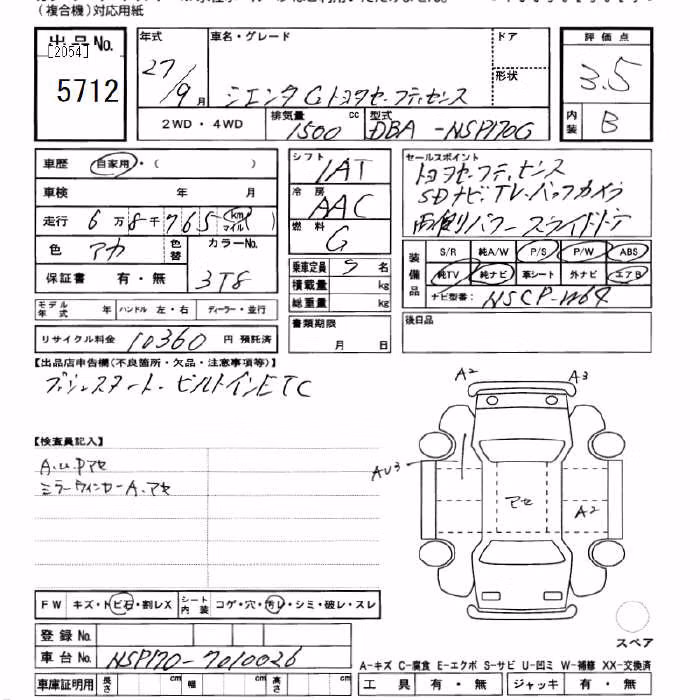 (複合機)対応用紙
出品No. [2054] 5712
年式 27/9月
車名・グレード シエンタ G トヨタセーフティセンス
ドア
形状
評価点 3.5
内装 B
2WD・4WD
排気量 1500 cc
型式 DBA-NSP170G
車歴 自家用・( )
車検 年 月
走行 6万8千765 km マイル
色 アカ 色替 カラーNo. 3T8
保証書 有・無
モデル年式 年 ハンドル 左・右 ディーラー・並行
リサイクル料金 10360 円 預託済
シフト IAT
冷房 AAC
燃料 G
乗車定員 5 名
積載量 kg
総重量 kg
書類期限 月 日
セールスポイント
トヨタセーフティセンス
SDナビTV・バックカメラ
両側パワースライドドア
装備品 S/R 純A/W P/S P/W ABS
純TV 純ナビ 革シート 外ナビ エアB
ナビ型番: NSCP-W64
後日品
【出品店申告欄(不良箇所・欠品・注意事項等)】
プッシュスタート・ビルトインETC
【検査員記入】
A.U.Pアセ
ミラーウィンカーA.アセ
A2
A3
AU3
アセ
A2
スペア
FW キズ・トビ石・割レX シート内装 コゲ・穴・汚レ・シミ・破レ・スレ
登録No.
車台No. NSP170-7010026
車庫証明用 長さ cm 幅 cm 高さ cm
A-キズ C-腐食 E-エクボ S-サビ U-凹ミ W-補修 XX-交換済
工具 有・無 ジャッキ 有・無